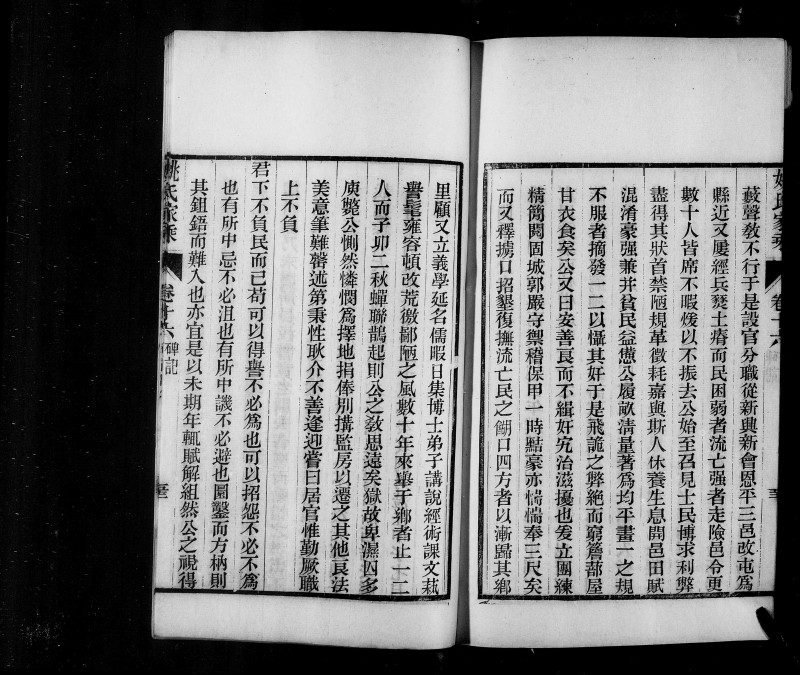 姚氏家乘 卷十六 碑記
藪聲敎不行于是設官分職從新興新會恩平三邑改屯爲
縣近又屢經兵燹土瘠而民困弱者流亡强者走險邑令更
數十人皆席不暇煖以不振去公始至召見士民博求利弊
盡得其狀首禁陋規革徵耗嘉與斯人休養生息開邑田賦
混淆豪强兼并貧民益憊公履畝清量著爲均平畫一之規
不服者摘發一二以懾其奸于是飛詭之弊絕而窮簷蔀屋
甘衣食矣公又曰安善良而不緝奸宄治滋擾也爰立團練
精簡閱固城郭嚴守禦稽保甲一時點豪亦惴惴奉三尺矣
而又釋擄口招墾復撫流亡民之餬口四方者以漸歸其鄉
里顧又立義學延名儒暇日集博士弟子講說經術課文蓺
譽髦雍容頓改荒徼鄙陋之風數十年來舉于鄉者止一二
人而子卯二秋蟬聯鵲起則公之敎思遠矣獄故卑濕囚多
庾斃公惻然憐憫爲擇地捐俸別搆監房以遷之其他良法
美意筆難罄述第秉性耿介不善逢迎嘗曰居官惟勤厥職
上不負
君下不負民而已苟可以得譽不必爲也可以招怨不必不爲
也有所中忌不必沮也有所中譏不必避也圜鑿而方枘則
其鉏鋙而難入也亦宜是以未期年輒賦解組然公之視得
姚氏家乘 卷十六 碑記